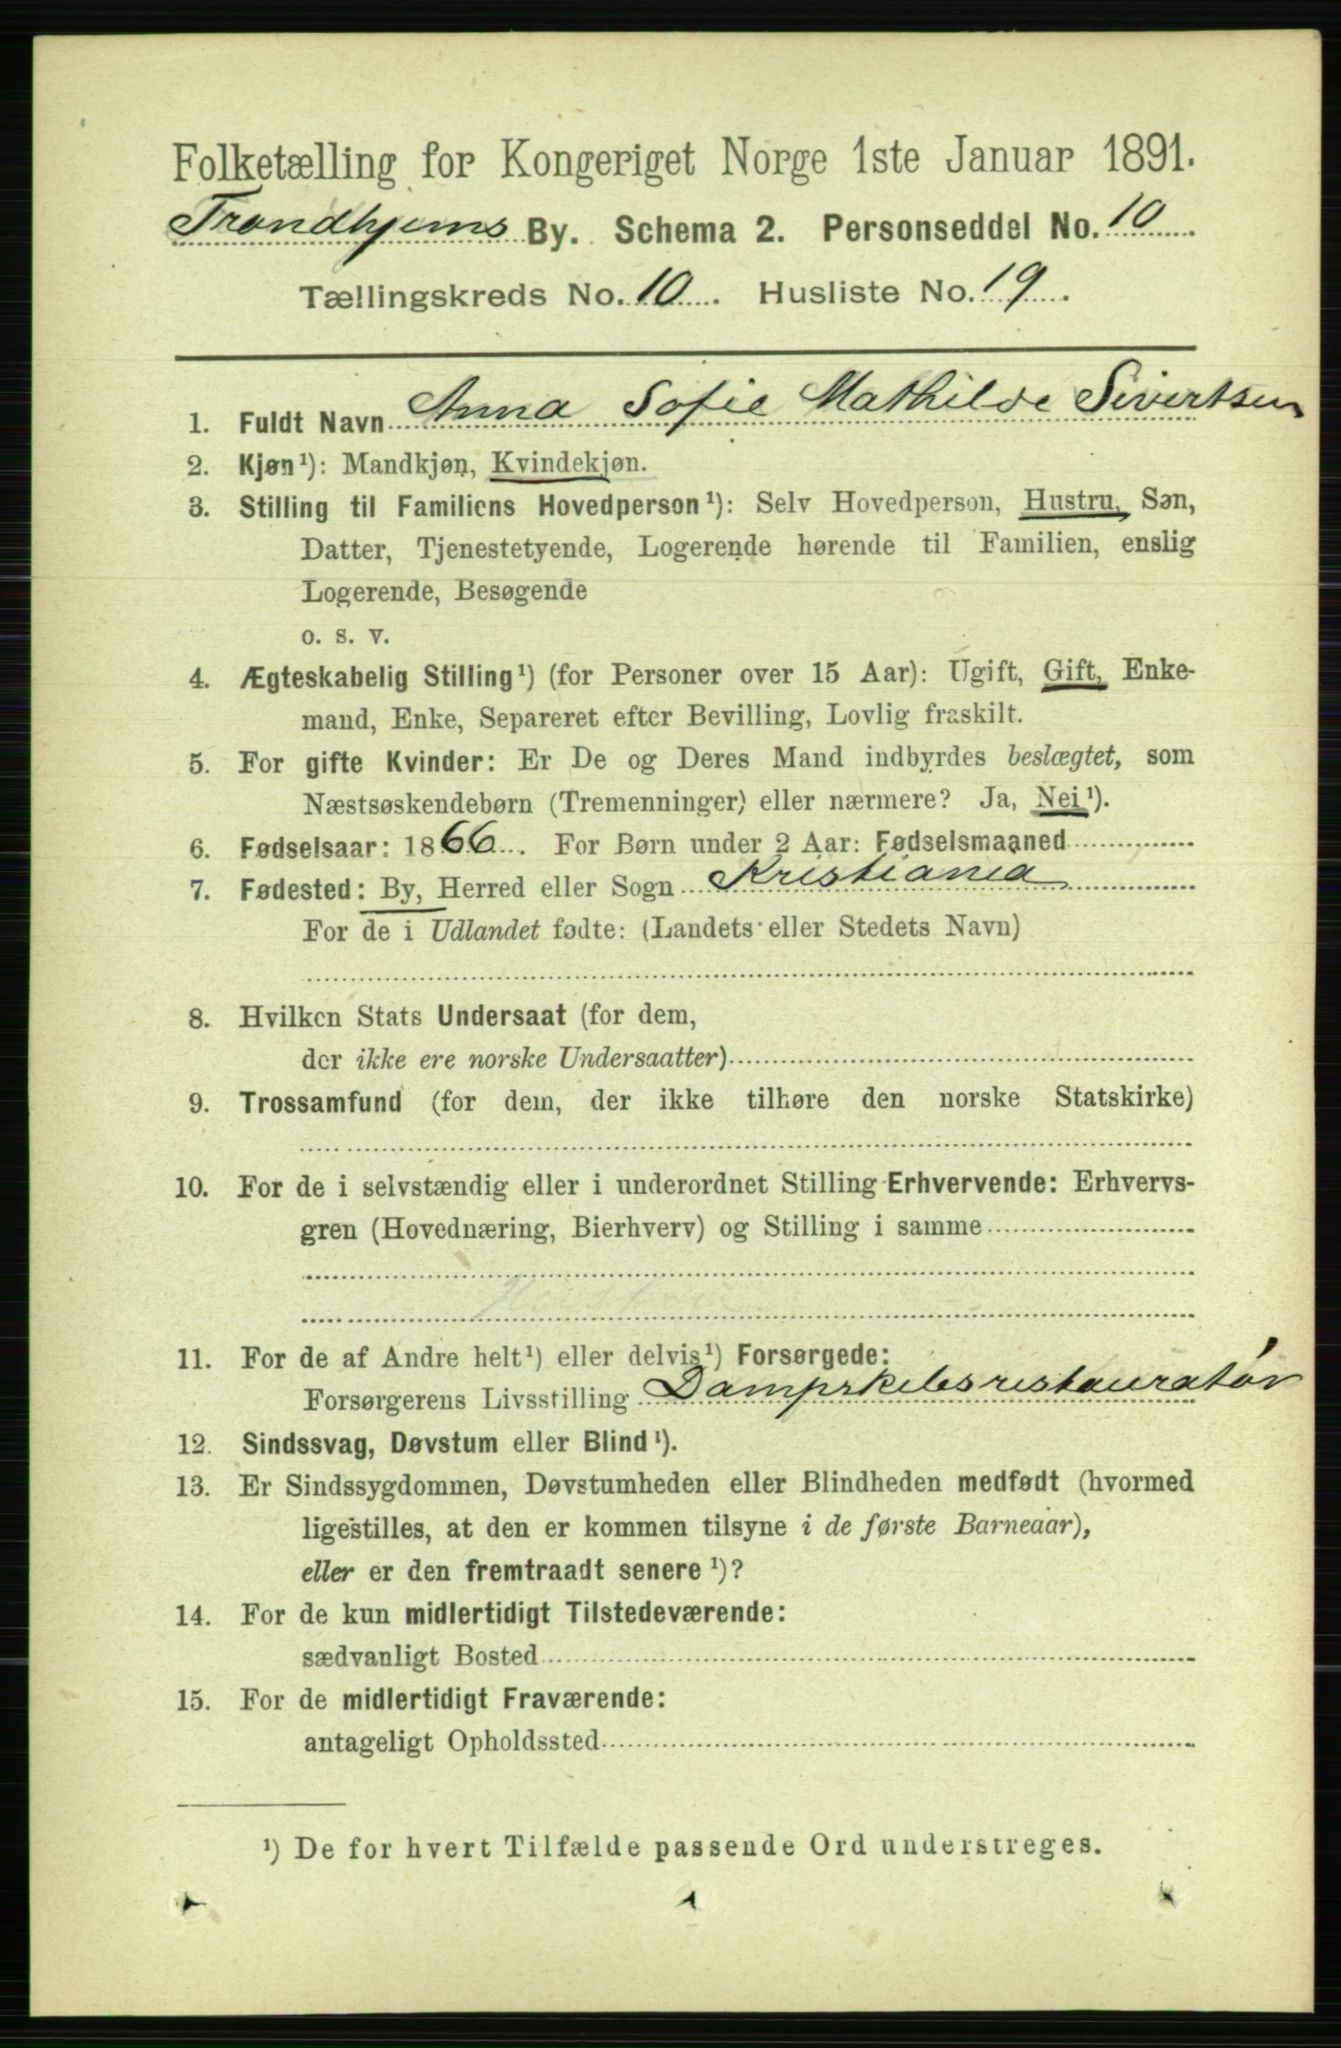 Folketælling for Kongeriget Norge 1ste Januar 1891.
Trondhjems By. Schema 2. Personseddel No. 10
Tællingskreds No. 10. Husliste No. 19.
1. Fuldt Navn Anna Sofie Mathilde Sivertsen
2. Kjøn¹): Mandkjøn, Kvindekjøn.
3. Stilling til Familiens Hovedperson¹): Selv Hovedperson, Hustru, Søn,
Datter, Tjenestetyende, Logerende hørende til Familien, enslig
Logerende, Besøgende
o. s. v.
4. Ægteskabelig Stilling¹) (for Personer over 15 Aar): Ugift, Gift, Enke-
mand, Enke, Separeret efter Bevilling, Lovlig fraskilt.
5. For gifte Kvinder: Er De og Deres Mand indbyrdes beslægtet, som
Næstsøskendebørn (Tremenninger) eller nærmere? Ja, Nei¹).
6. Fødselsaar: 1866. For Børn under 2 Aar: Fødselsmaaned
7. Fødested: By, Herred eller Sogn Kristiania
For de i Udlandet fødte: (Landets eller Stedets Navn)
8. Hvilken Stats Undersaat (for dem,
der ikke ere norske Undersaatter)
9. Trossamfund (for dem, der ikke tilhøre den norske Statskirke)
10. For de i selvstændig eller i underordnet Stilling Erhvervende: Erhvervs-
gren (Hovednæring, Bierhverv) og Stilling i samme
11. For de af Andre helt¹) eller delvis¹) Forsørgede:
Forsørgerens Livsstilling Dampskibsrestauratør
12. Sindssvag, Døvstum eller Blind¹).
13. Er Sindssygdommen, Døvstumheden eller Blindheden medfødt (hvormed
ligestilles, at den er kommen tilsyne i de første Barneaar),
eller er den fremtraadt senere¹)?
14. For de kun midlertidigt Tilstedeværende:
sædvanligt Bosted
15. For de midlertidigt Fraværende:
antageligt Opholdssted
¹) De for hvert Tilfælde passende Ord understreges.